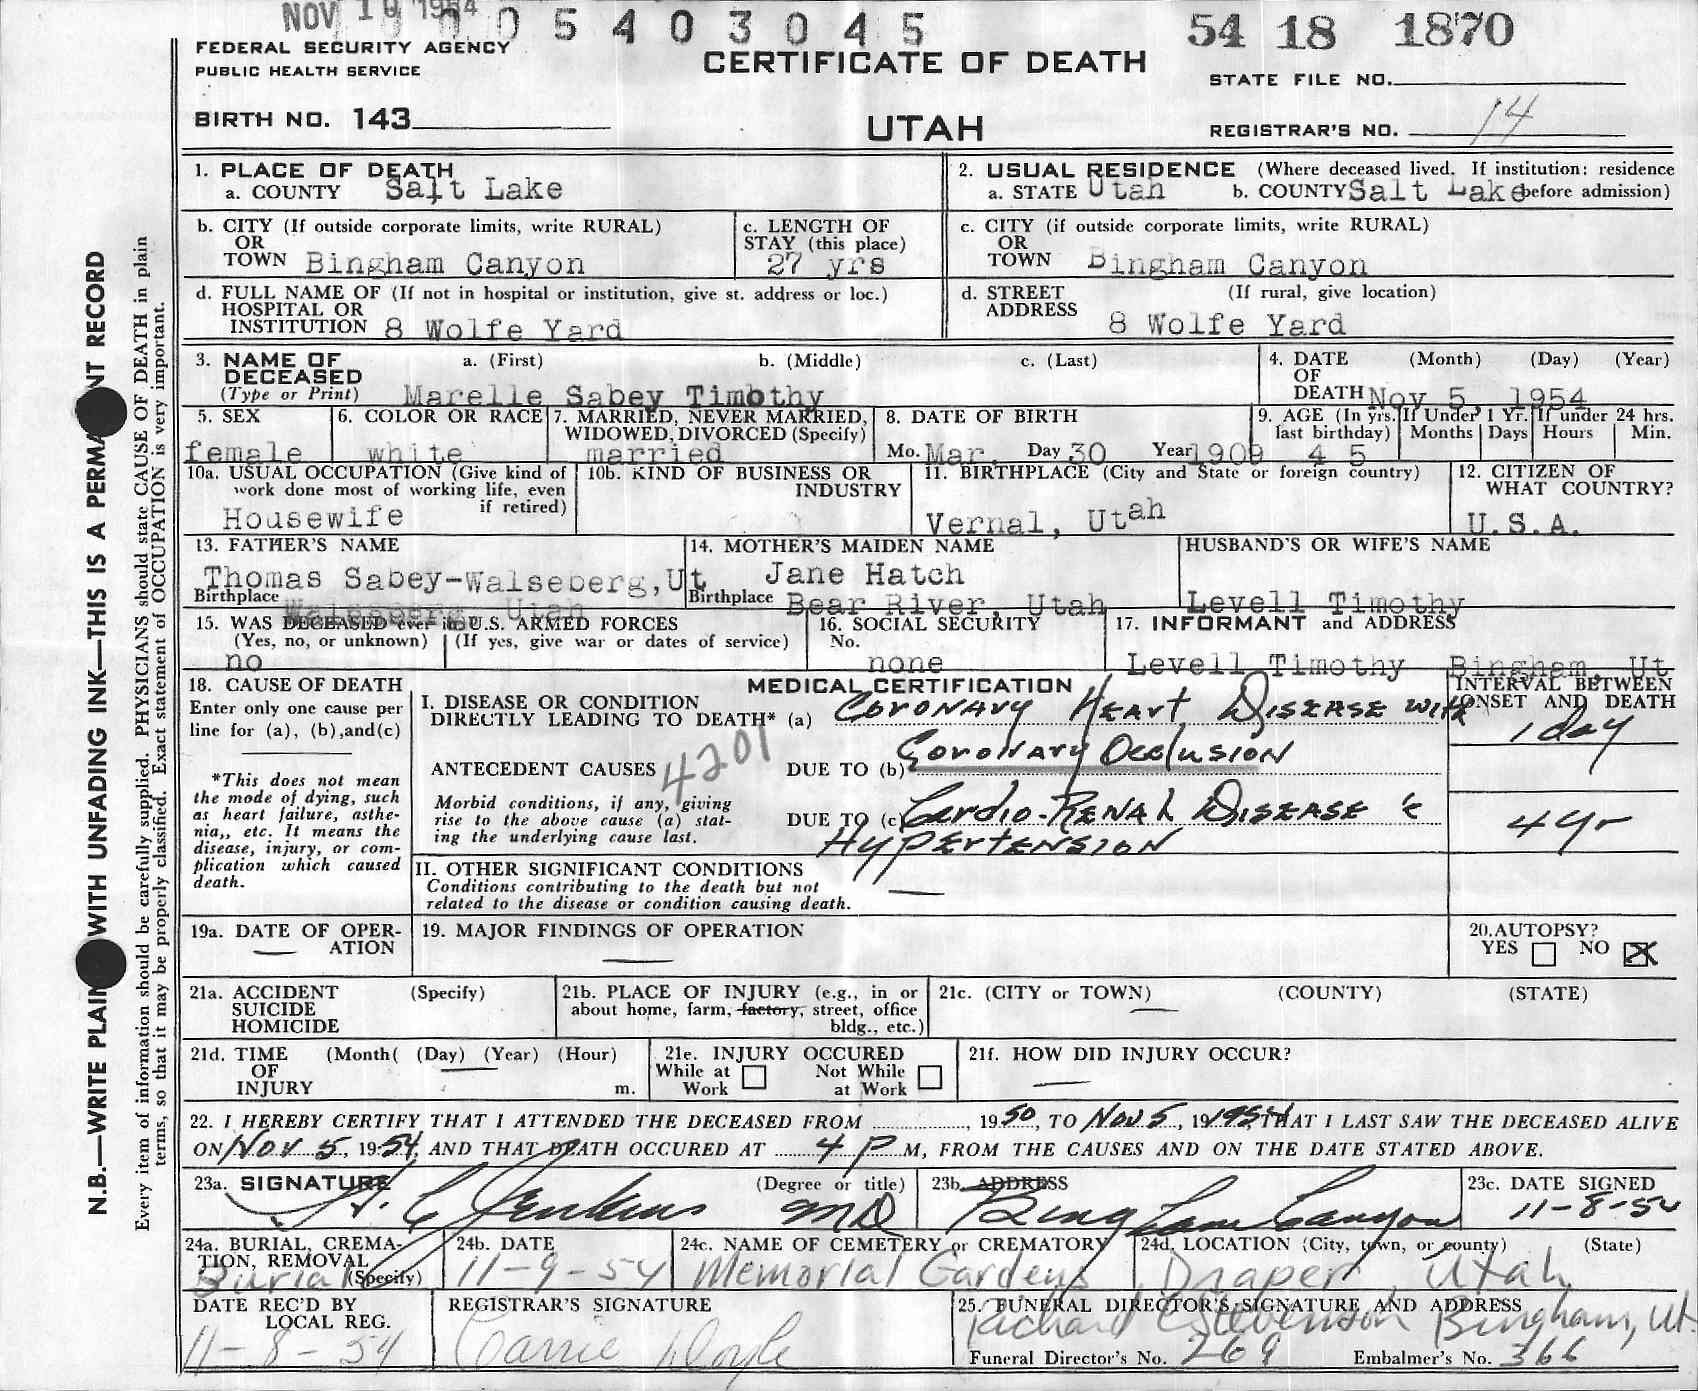 NOV 10 1954 0 0 5 4 0 3 0 4 5
54 18 1870
FEDERAL SECURITY AGENCY
PUBLIC HEALTH SERVICE
CERTIFICATE OF DEATH
STATE FILE NO.
BIRTH NO. 143
UTAH
REGISTRAR'S NO. 14
1. PLACE OF DEATH
a. COUNTY Salt Lake
2. USUAL RESIDENCE (Where deceased lived. If institution: residence
a. STATE Utah b. COUNTY Salt Lake before admission)
b. CITY (If outside corporate limits, write RURAL)
OR
TOWN Bingham Canyon
c. LENGTH OF
STAY (this place)
27 yrs
c. CITY (if outside corporate limits, write RURAL)
OR
TOWN Bingham Canyon
d. FULL NAME OF (If not in hospital or institution, give st. address or loc.)
HOSPITAL OR
INSTITUTION 8 Wolfe Yard
d. STREET (If rural, give location)
ADDRESS
8 Wolfe Yard
3. NAME OF a. (First) b. (Middle) c. (Last)
DECEASED
(Type or Print) Marelle Sabey Timothy
4. DATE (Month) (Day) (Year)
OF
DEATH Nov 5, 1954
5. SEX
female
6. COLOR OR RACE
white
7. MARRIED, NEVER MARRIED,
WIDOWED, DIVORCED (Specify)
married
8. DATE OF BIRTH
Mo. Mar. Day 30 Year 1909
9. AGE (In yrs. If Under 1 Yr. If under 24 hrs.
last birthday) Months Days Hours Min.
45
10a. USUAL OCCUPATION (Give kind of
work done most of working life, even
if retired)
Housewife
10b. KIND OF BUSINESS OR
INDUSTRY
11. BIRTHPLACE (City and State or foreign country)
Vernal, Utah
12. CITIZEN OF
WHAT COUNTRY?
U.S.A.
13. FATHER'S NAME
Thomas Sabey-Walseberg, Ut
Birthplace Walseberg, Utah
14. MOTHER'S MAIDEN NAME
Jane Hatch
Birthplace Bear River, Utah
HUSBAND'S OR WIFE'S NAME
Levell Timothy
15. WAS DECEASED ever in U.S. ARMED FORCES
(Yes, no, or unknown) (If yes, give war or dates of service)
no
16. SOCIAL SECURITY
No.
none
17. INFORMANT and ADDRESS
Levell Timothy Bingham, Ut
18. CAUSE OF DEATH
Enter only one cause per
line for (a), (b),and(c)
*This does not mean
the mode of dying, such
as heart failure, asthe-
nia,, etc. It means the
disease, injury, or com-
plication which caused
death.
MEDICAL CERTIFICATION
I. DISEASE OR CONDITION
DIRECTLY LEADING TO DEATH* (a) Coronary Heart Disease with
ANTECEDENT CAUSES 4201 DUE TO (b) Coronary Occlusion
Morbid conditions, if any, giving
rise to the above cause (a) stat-
ing the underlying cause last.
DUE TO (c) Cardio-Renal Disease c̄
Hypertension
II. OTHER SIGNIFICANT CONDITIONS
Conditions contributing to the death but not
related to the disease or condition causing death.
INTERVAL BETWEEN
ONSET AND DEATH
1 day
4 yr
19a. DATE OF OPER-
ATION
19. MAJOR FINDINGS OF OPERATION
20. AUTOPSY?
YES NO X
21a. ACCIDENT (Specify)
SUICIDE
HOMICIDE
21b. PLACE OF INJURY (e.g., in or
about home, farm, factory, street, office
bldg., etc.)
21c. (CITY or TOWN) (COUNTY) (STATE)
21d. TIME (Month( (Day) (Year) (Hour)
OF
INJURY m.
21e. INJURY OCCURED
While at Not While
Work at Work
21f. HOW DID INJURY OCCUR?
22. I HEREBY CERTIFY THAT I ATTENDED THE DECEASED FROM ........, 1950, TO Nov 5, 19 1954 THAT I LAST SAW THE DECEASED ALIVE
ON Nov 5, 1954, AND THAT DEATH OCCURED AT 4 P M, FROM THE CAUSES AND ON THE DATE STATED ABOVE.
23a. SIGNATURE (Degree or title)
H. C. Jenkins MD
23b. ADDRESS
Bingham Canyon
23c. DATE SIGNED
11-8-54
24a. BURIAL, CREMA-
TION, REMOVAL
Burial (Specify)
24b. DATE
11-9-54
24c. NAME OF CEMETERY or CREMATORY
Memorial Gardens
24d. LOCATION (City, town, or county) (State)
Draper, Utah
DATE REC'D BY
LOCAL REG.
11-8-54
REGISTRAR'S SIGNATURE
Carrie Doyle
25. FUNERAL DIRECTOR'S SIGNATURE AND ADDRESS
Richard Stevenson Bingham, Ut.
Funeral Director's No. 269 Embalmer's No. 366
N.B.—WRITE PLAIN WITH UNFADING INK—THIS IS A PERMANENT RECORD
Every item of information should be carefully supplied. PHYSICIANS should state CAUSE OF DEATH in plain
terms, so that it may be properly classified. Exact statement of OCCUPATION is very important.